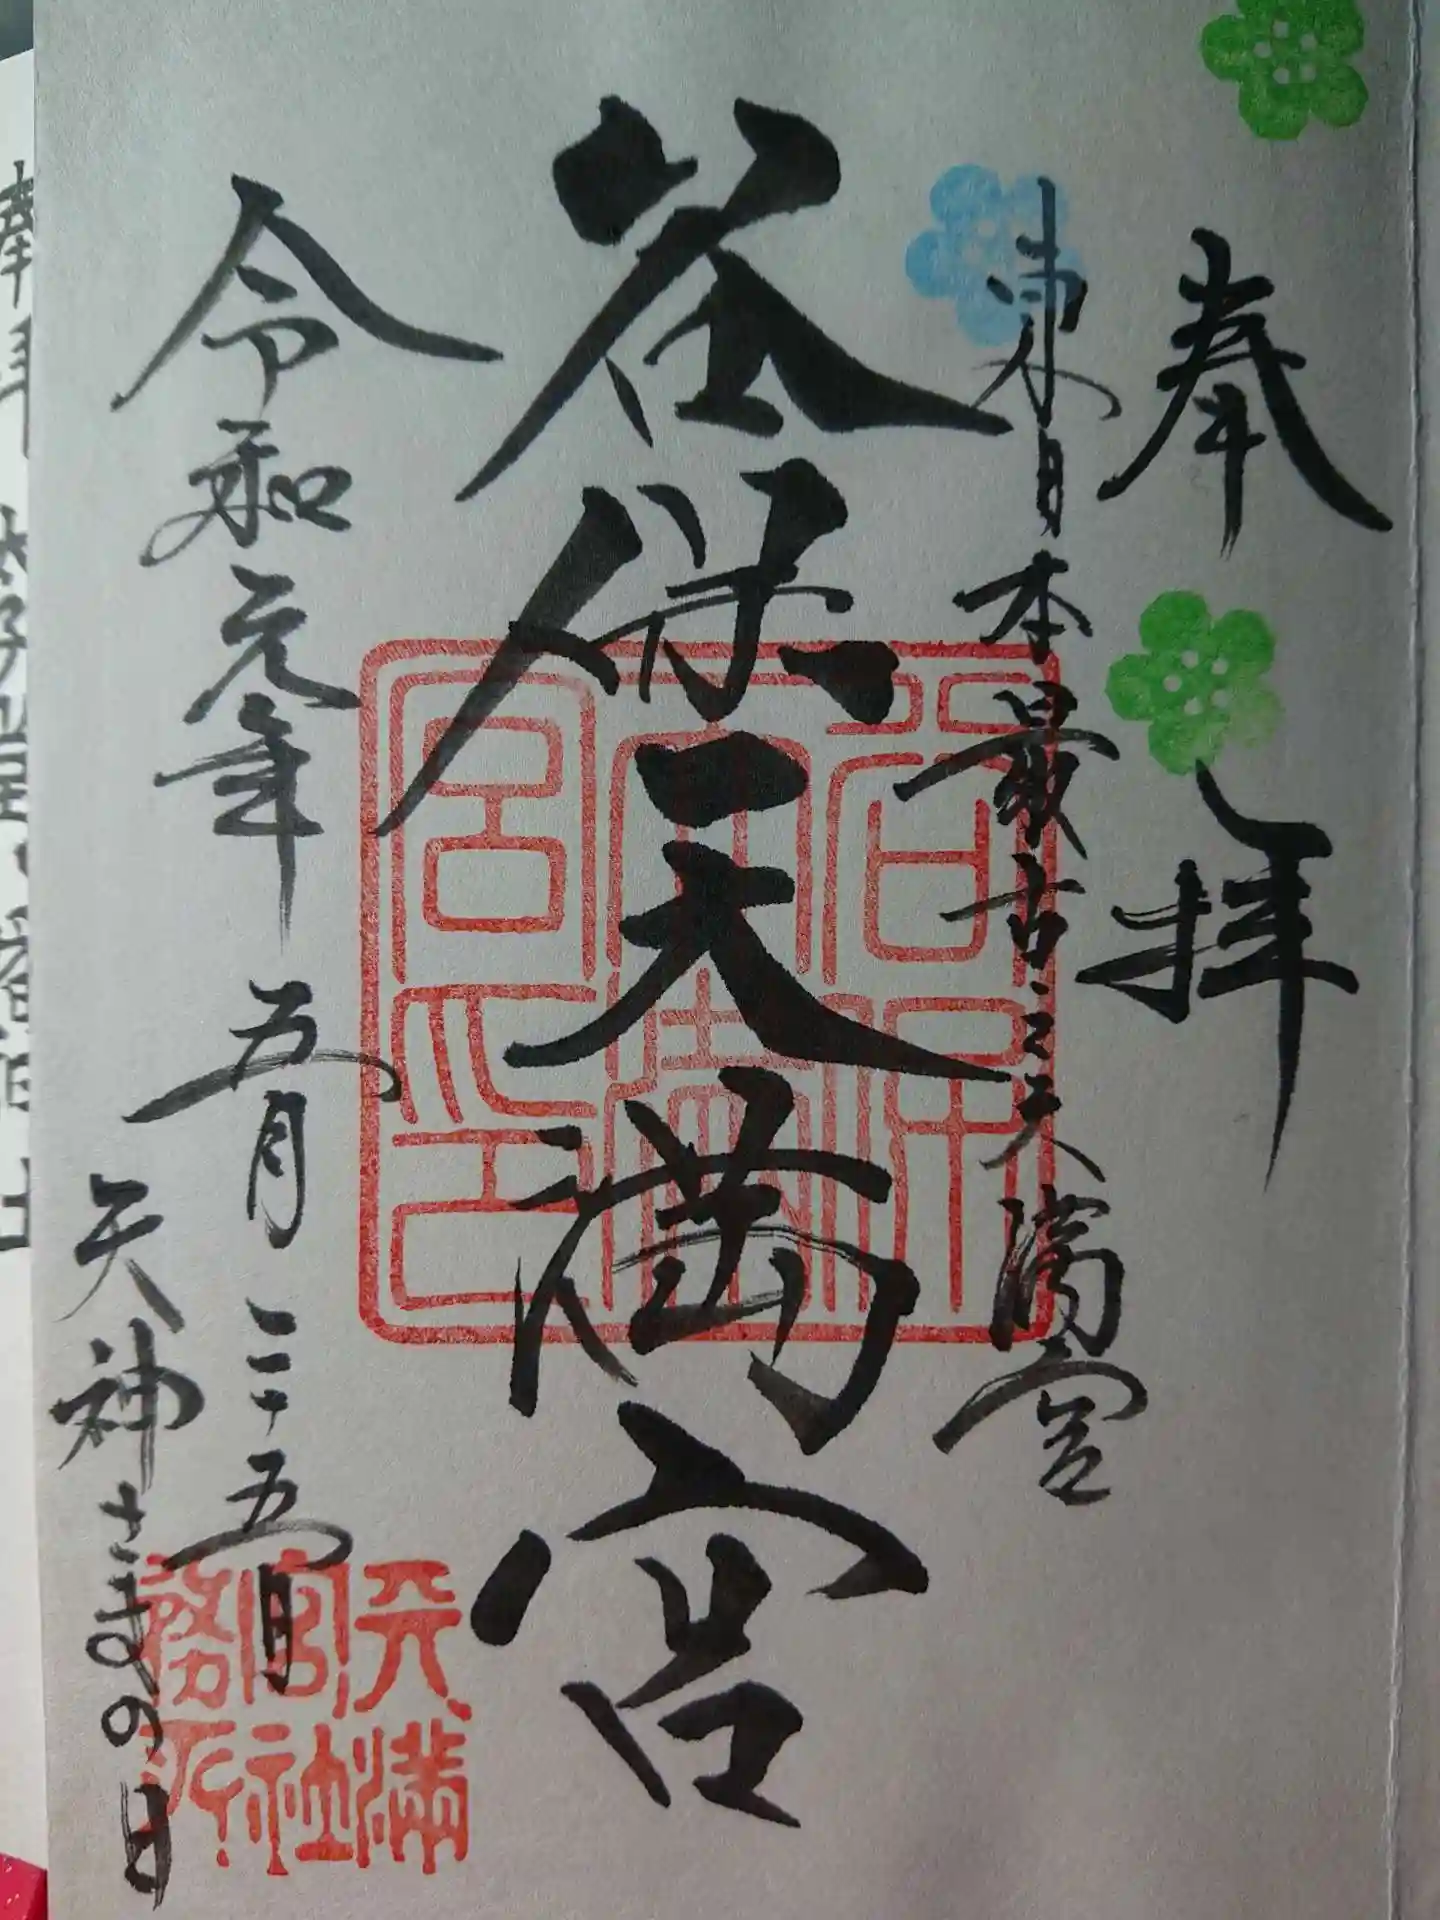 奉拝
東日本最古之天満宮
谷保天満宮
令和元年五月二十五日
天神さまの日
谷保天満宮印
天満宮社務所